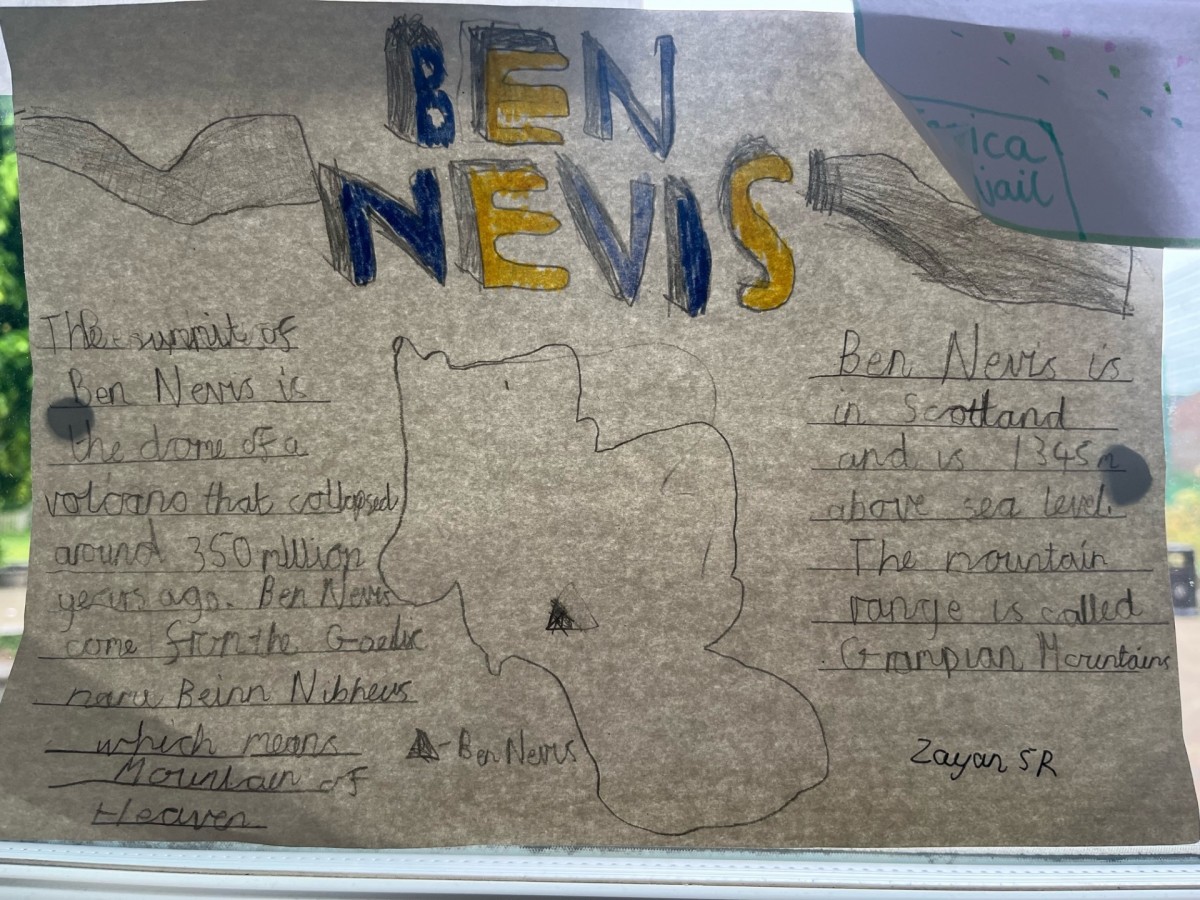 BEN
NEVIS
The summit of
Ben Nevis is
the dome of a
volcano that collapsed
around 350 million
years ago. Ben Nevis
come from the Gaelic
Beinn Nibheis
which means
Mountain of
Heaven
▲-Ben Nevis
Ben Nevis is
in Scotland
and is 1345m
above sea level.
The mountain
range is called
Grampian Mountains
Zayan 5R